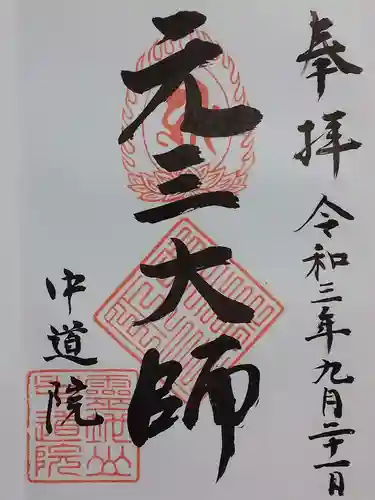 奉拝 令和三年九月二十一日
元三大師
中道院